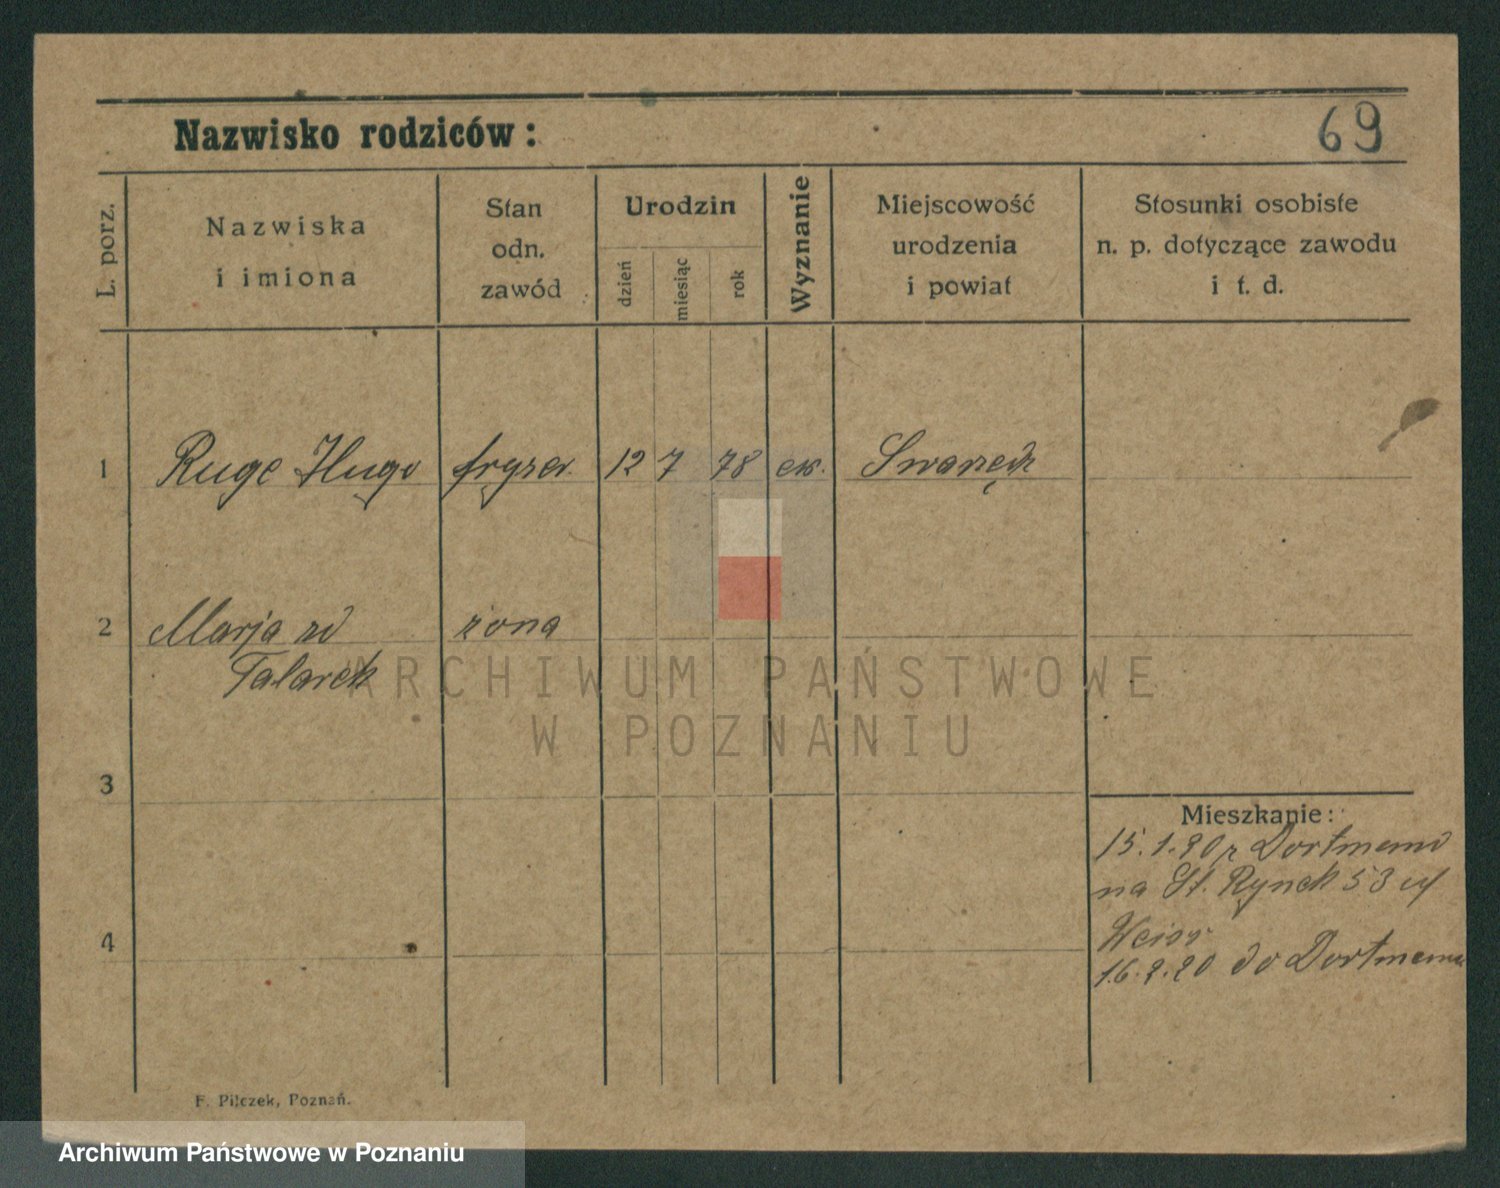 69
Nazwisko rodziców:
L. porz.
Nazwiska
i imiona
Stan
odn.
zawód
Urodzin
dzień
miesiąc
rok
Wyznanie
Miejscowość
urodzenia
i powiat
Stosunki osobiste
n. p. dotyczące zawodu
i t. d.
1 Ruge Hugo fryzer. 12 7 78 ew. Swarzędz
2 Marja zd żona
Talarek
3
4
Mieszkanie:
15.1.20 z Dortmund
na St. Rynek 53 u/
Weiss
16.2.20 do Dortmund
F. Pilczek, Poznań.
ARCHIWUM PAŃSTWOWE
W POZNANIU
Archiwum Państwowe w Poznaniu